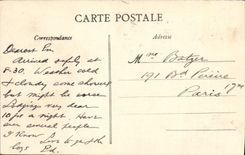 CARTE POSTALE
Correspondance
Adresse
Dearest Em
Arrived safely at
8-30. Weather cold
& cloudy some showers
but might be worse
Lodgings very dear
10/ps a night. Have
seen several people
I know. Love to yr & the
boys Ed.
Mme Batger
191 Bd Pereire
Paris 17me